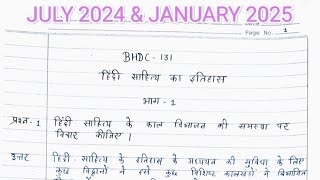 JULY 2024 & JANUARY 2025
Page No. 1
BHDC-131
हिंदी साहित्य का इतिहास
भाग - 1
प्रश्न-1 हिंदी साहित्य के काल विभाजन की समस्या पर
विचार कीजिए।
उत्तर हिंदी-साहित्य के इतिहास के अध्ययन की सुविधा के लिए
कुछ विद्वानों ने इसे कुछ विशिष्ट कालखंडों में विभाजित